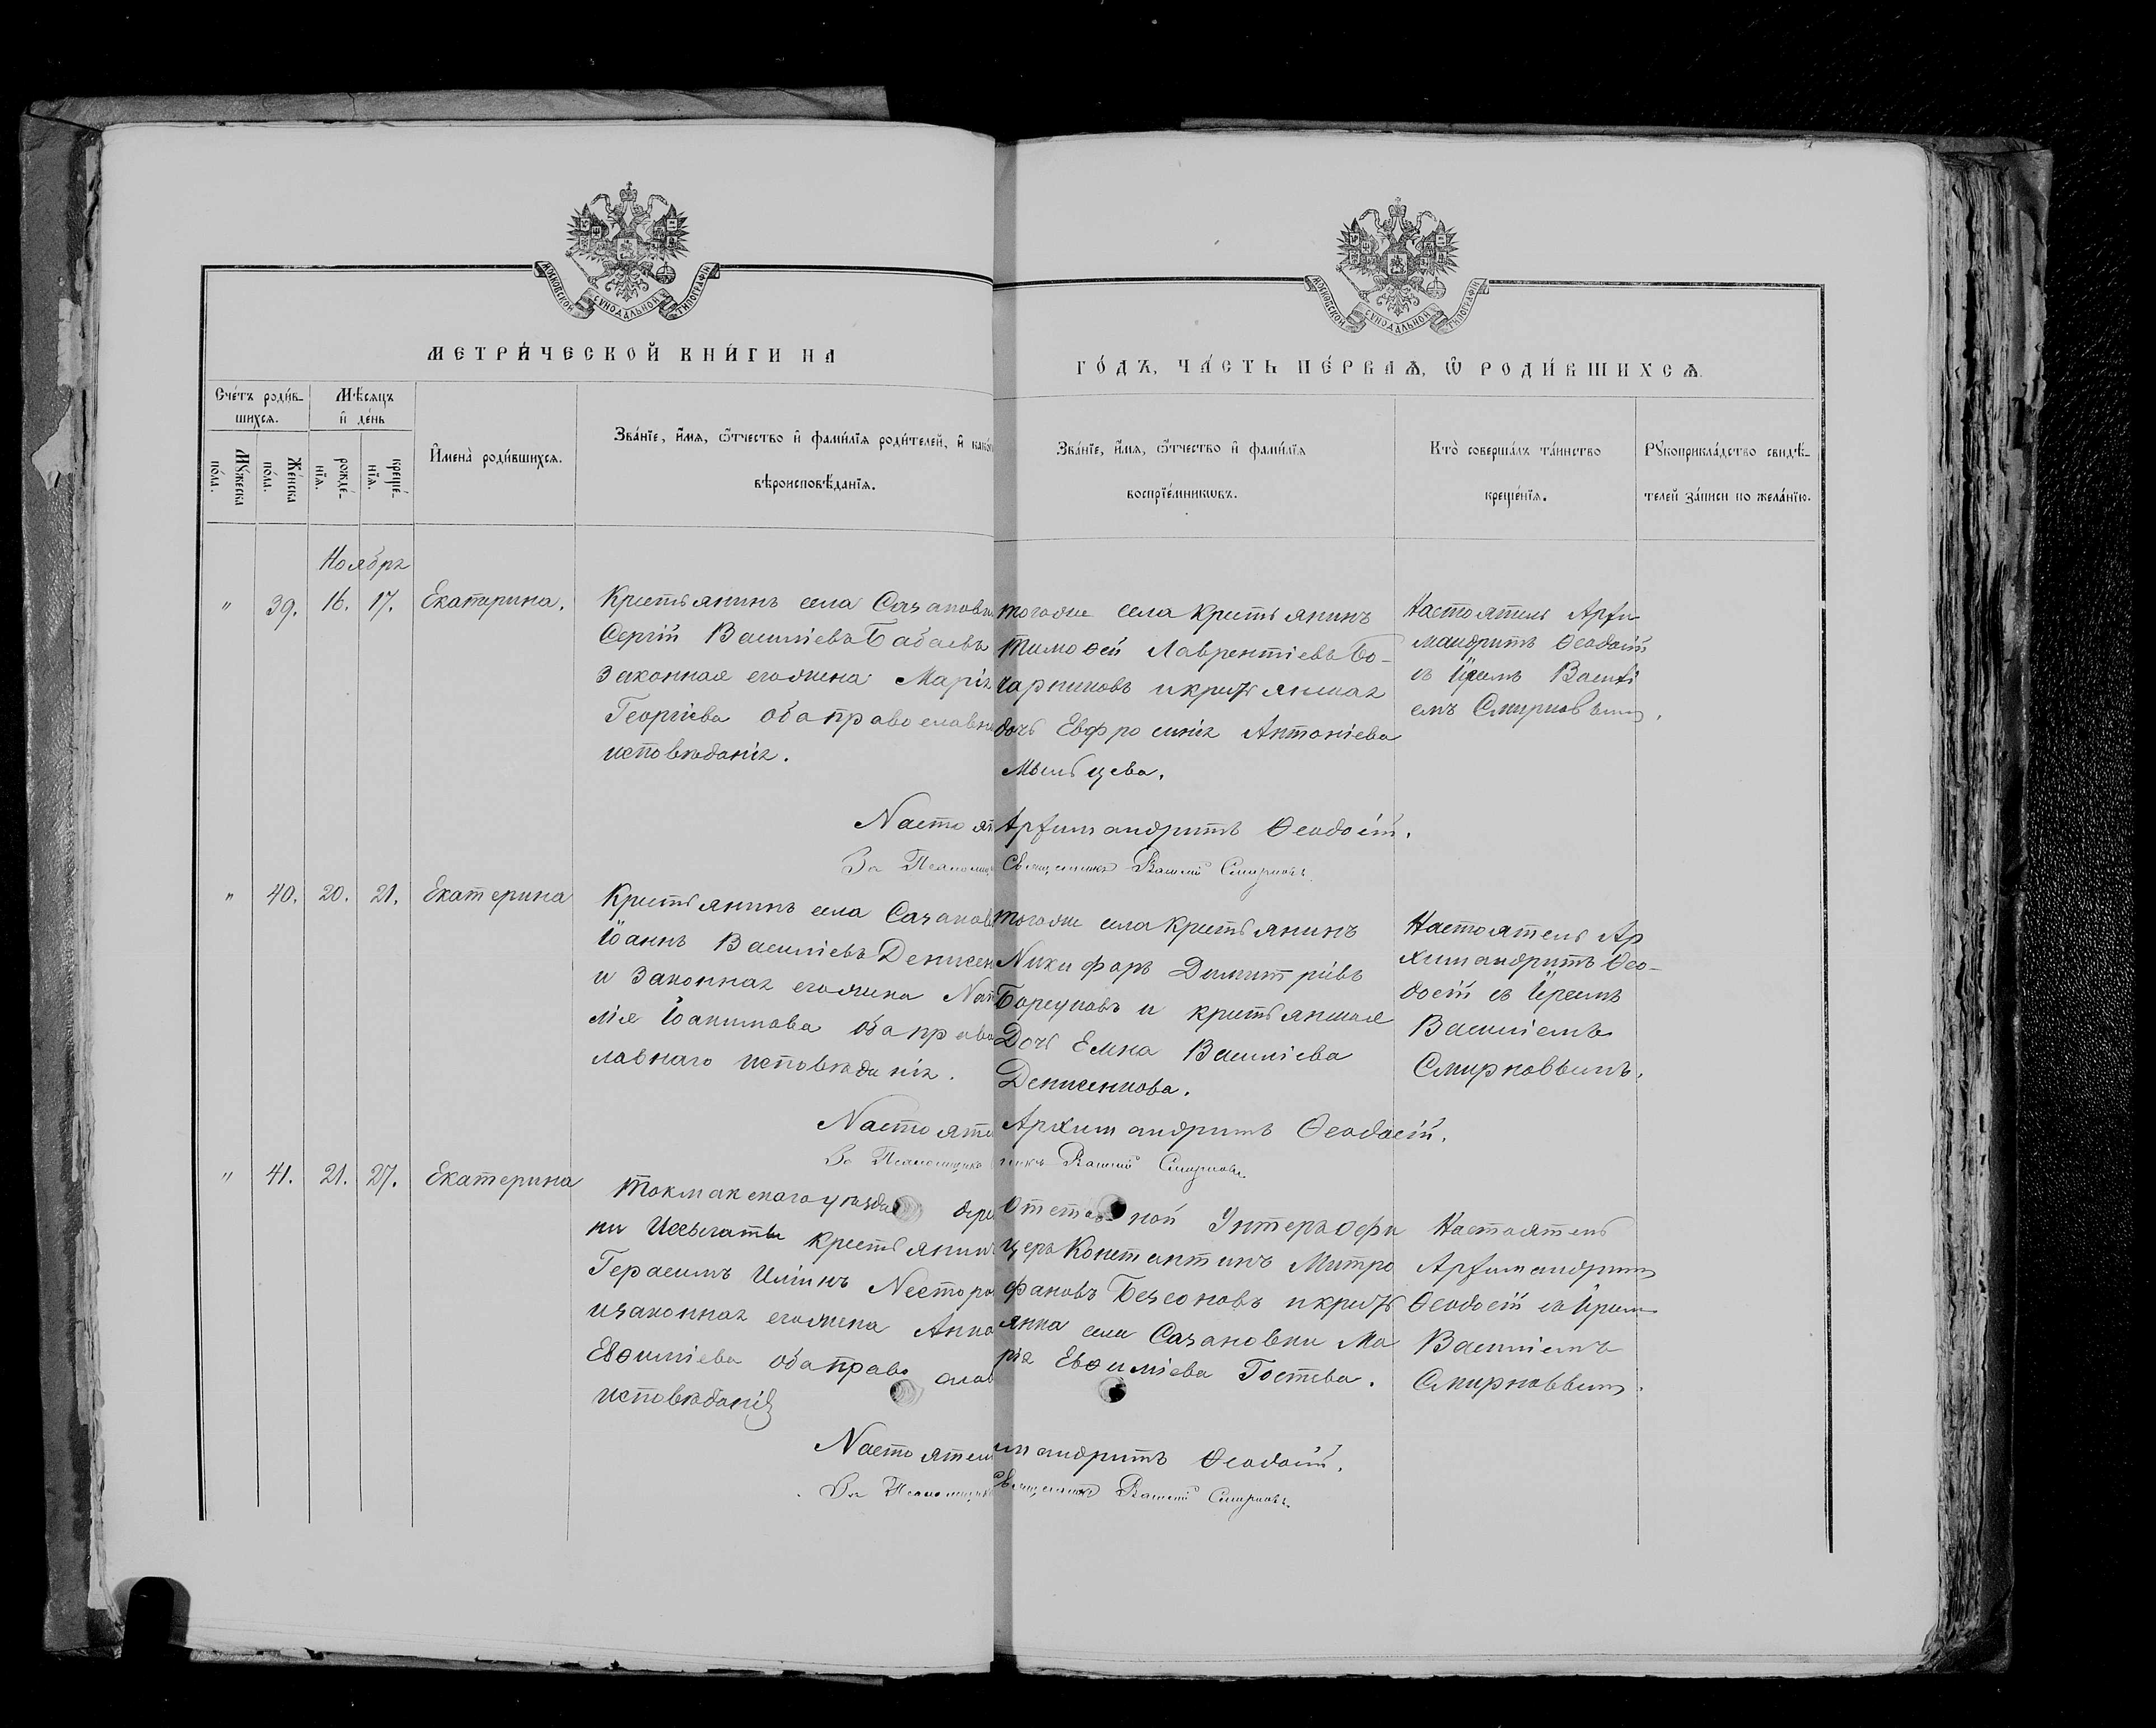 МОСКОВСКОЙ СѴНОДАЛЬНОЙ ТИПОГРАФІИ
МОСКОВСКОЙ СѴНОДАЛЬНОЙ ТИПОГРАФІИ
МЕТРИ́ЧЕСКОЙ КНИ́ГИ НА
ГО́ДЪ, ЧА́СТЬ ПЕ́РВАѦ, Ѽ РОДИ́ВШИХСѦ.
Сче́тъ роди́в-
шихсѧ.
Мѣ́сѧцъ
и҆ де́нь
Мꙋ́жеска
по́ла.
Же́нска
по́ла.
рожде́-
нїѧ.
креще́-
нїѧ.
И҆мена̀ роди́вшихсѧ.
Зва́нїе, и҆́мѧ, ѻ҆́тчество и҆ фами́лїѧ роди́телей, и҆ како́
вѣроисповѣ́данїѧ.
Зва́нїе, и҆́мѧ, ѻ҆́тчество и҆ фами́лїѧ
воспрїе́мникѡвъ.
Кто̀ соверша́лъ та́инство
креще́нїѧ.
Рꙋкоприкла́дство свидѣ́-
телей за́писи по жела́нїю.
Ноября
" 39. 16. 17. Екатерина.
Крестьянинъ села Сазановки
Сергій Васильевъ Бабаевъ
Законная его жена Марія
Георгіева оба православна
исповѣданія.
того же села Крестьянинъ
Тимоѳей Лаврентіевъ Бо-
чарниковъ и крестьянская
дочь Евфросинія Антоніева
Настоятель Архи
мандритъ Ѳеодосій
съ Іереемъ Васілі
емъ Смирновымъ.
Настоят Архимандритъ Ѳеодосій.
За Псаломщ Священникъ Василій Смирновъ.
" 40. 20. 21. Екатерина
Крестьянинъ села Сазанов
Іоаннъ Васильевъ Денисен
и Законная его жена Ната
лія Іоакимова оба право
лавнаго исповѣданія.
того же села Крестьянинъ
Никифоръ Димитріевъ
и крестьянская
Дочь Елена Васильева
Денисенкова.
Настоятель Ар
химандритъ Ѳео-
досій съ Іереемъ
Василіемъ
Смирновымъ.
Настояте Архимандритъ Ѳеодосій.
За Псаломщика никъ Василій Смирновъ
" 41. 21. 27. Екатерина
Токмакскаго уѣзда дере
ни крестьянинъ
Герасимъ Ильинъ Несторо
и законная его жена Анна
Евѳиміева оба право слав
исповѣданія
Отставной Унтеръ офи
церъ Константинъ Митро
фановъ Безсоновъ и кресть
янка села Сазановки Ма
рія Евѳиміева Гостева.
Настоятель
Архимандритъ
Ѳеодосій съ Іереем
Василіемъ
Смирновымъ.
Настоятель мандритъ Ѳеодосій.
За Псаломщика Священникъ Василій Смирновъ.